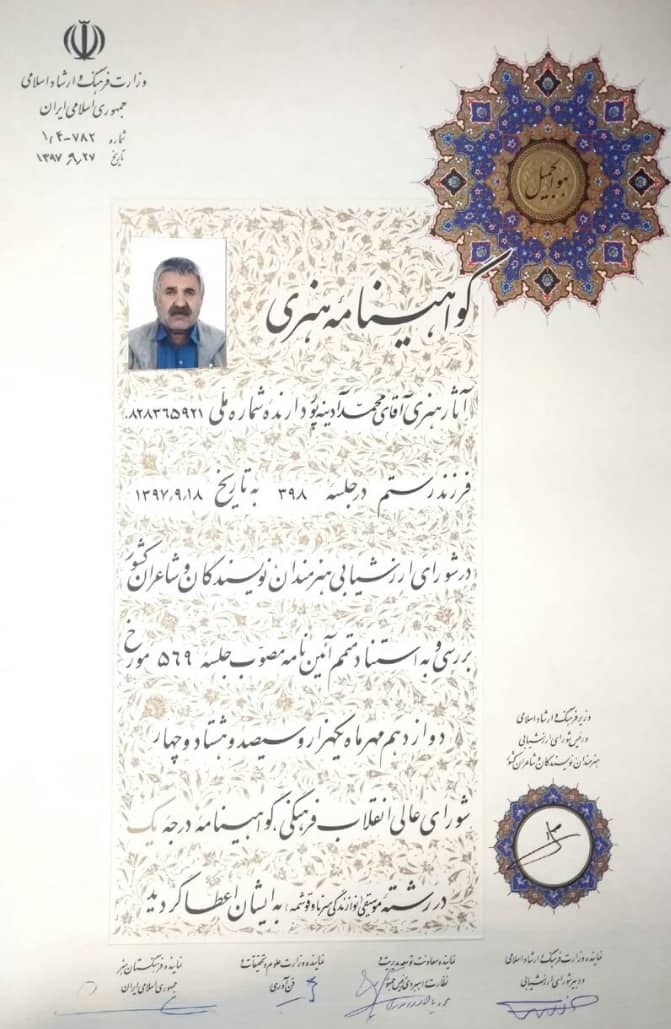 وزارت فرهنگ و ارشاد اسلامی
جمهوری اسلامی ایران
شماره ۱۰۴-۷۸۲
تاریخ ۱۳۹۷/۹/۲۷
هوالجمیل
گواهینامه هنری
آثار هنری آقای محمد آدینه پور دارنده شماره ملی ۰۸۲۸۳۶۵۹۲۱
فرزند رستم در جلسه ۳۹۸ به تاریخ ۱۳۹۷,۹,۱۸
در شورای ارزشیابی هنرمندان نویسندگان و شاعران کشور
بررسی و به استناد متمم آئین نامه مصوب جلسه ۵۶۹ مورخ
دوازدهم مهرماه یکهزار و سیصد و هشتاد و چهار
شورای عالی انقلاب فرهنگی گواهینامه درجه یک
در رشته موسیقی (نوازندگی سرنا و قوشمه) به ایشان اعطا گردید
وزیر فرهنگ و ارشاد اسلامی
و رئیس شورای ارزشیابی
هنرمندان نویسندگان و شاعران کشور
نماینده وزارت فرهنگ و ارشاد اسلامی
و دبیر شورای ارزشیابی
نماینده معاونت توسعه مدیریت و
نظارت راهبردی رئیس جمهور
نماینده وزارت علوم و تحقیقات و
فن آوری
نماینده فرهنگستان هنر
جمهوری اسلامی ایران